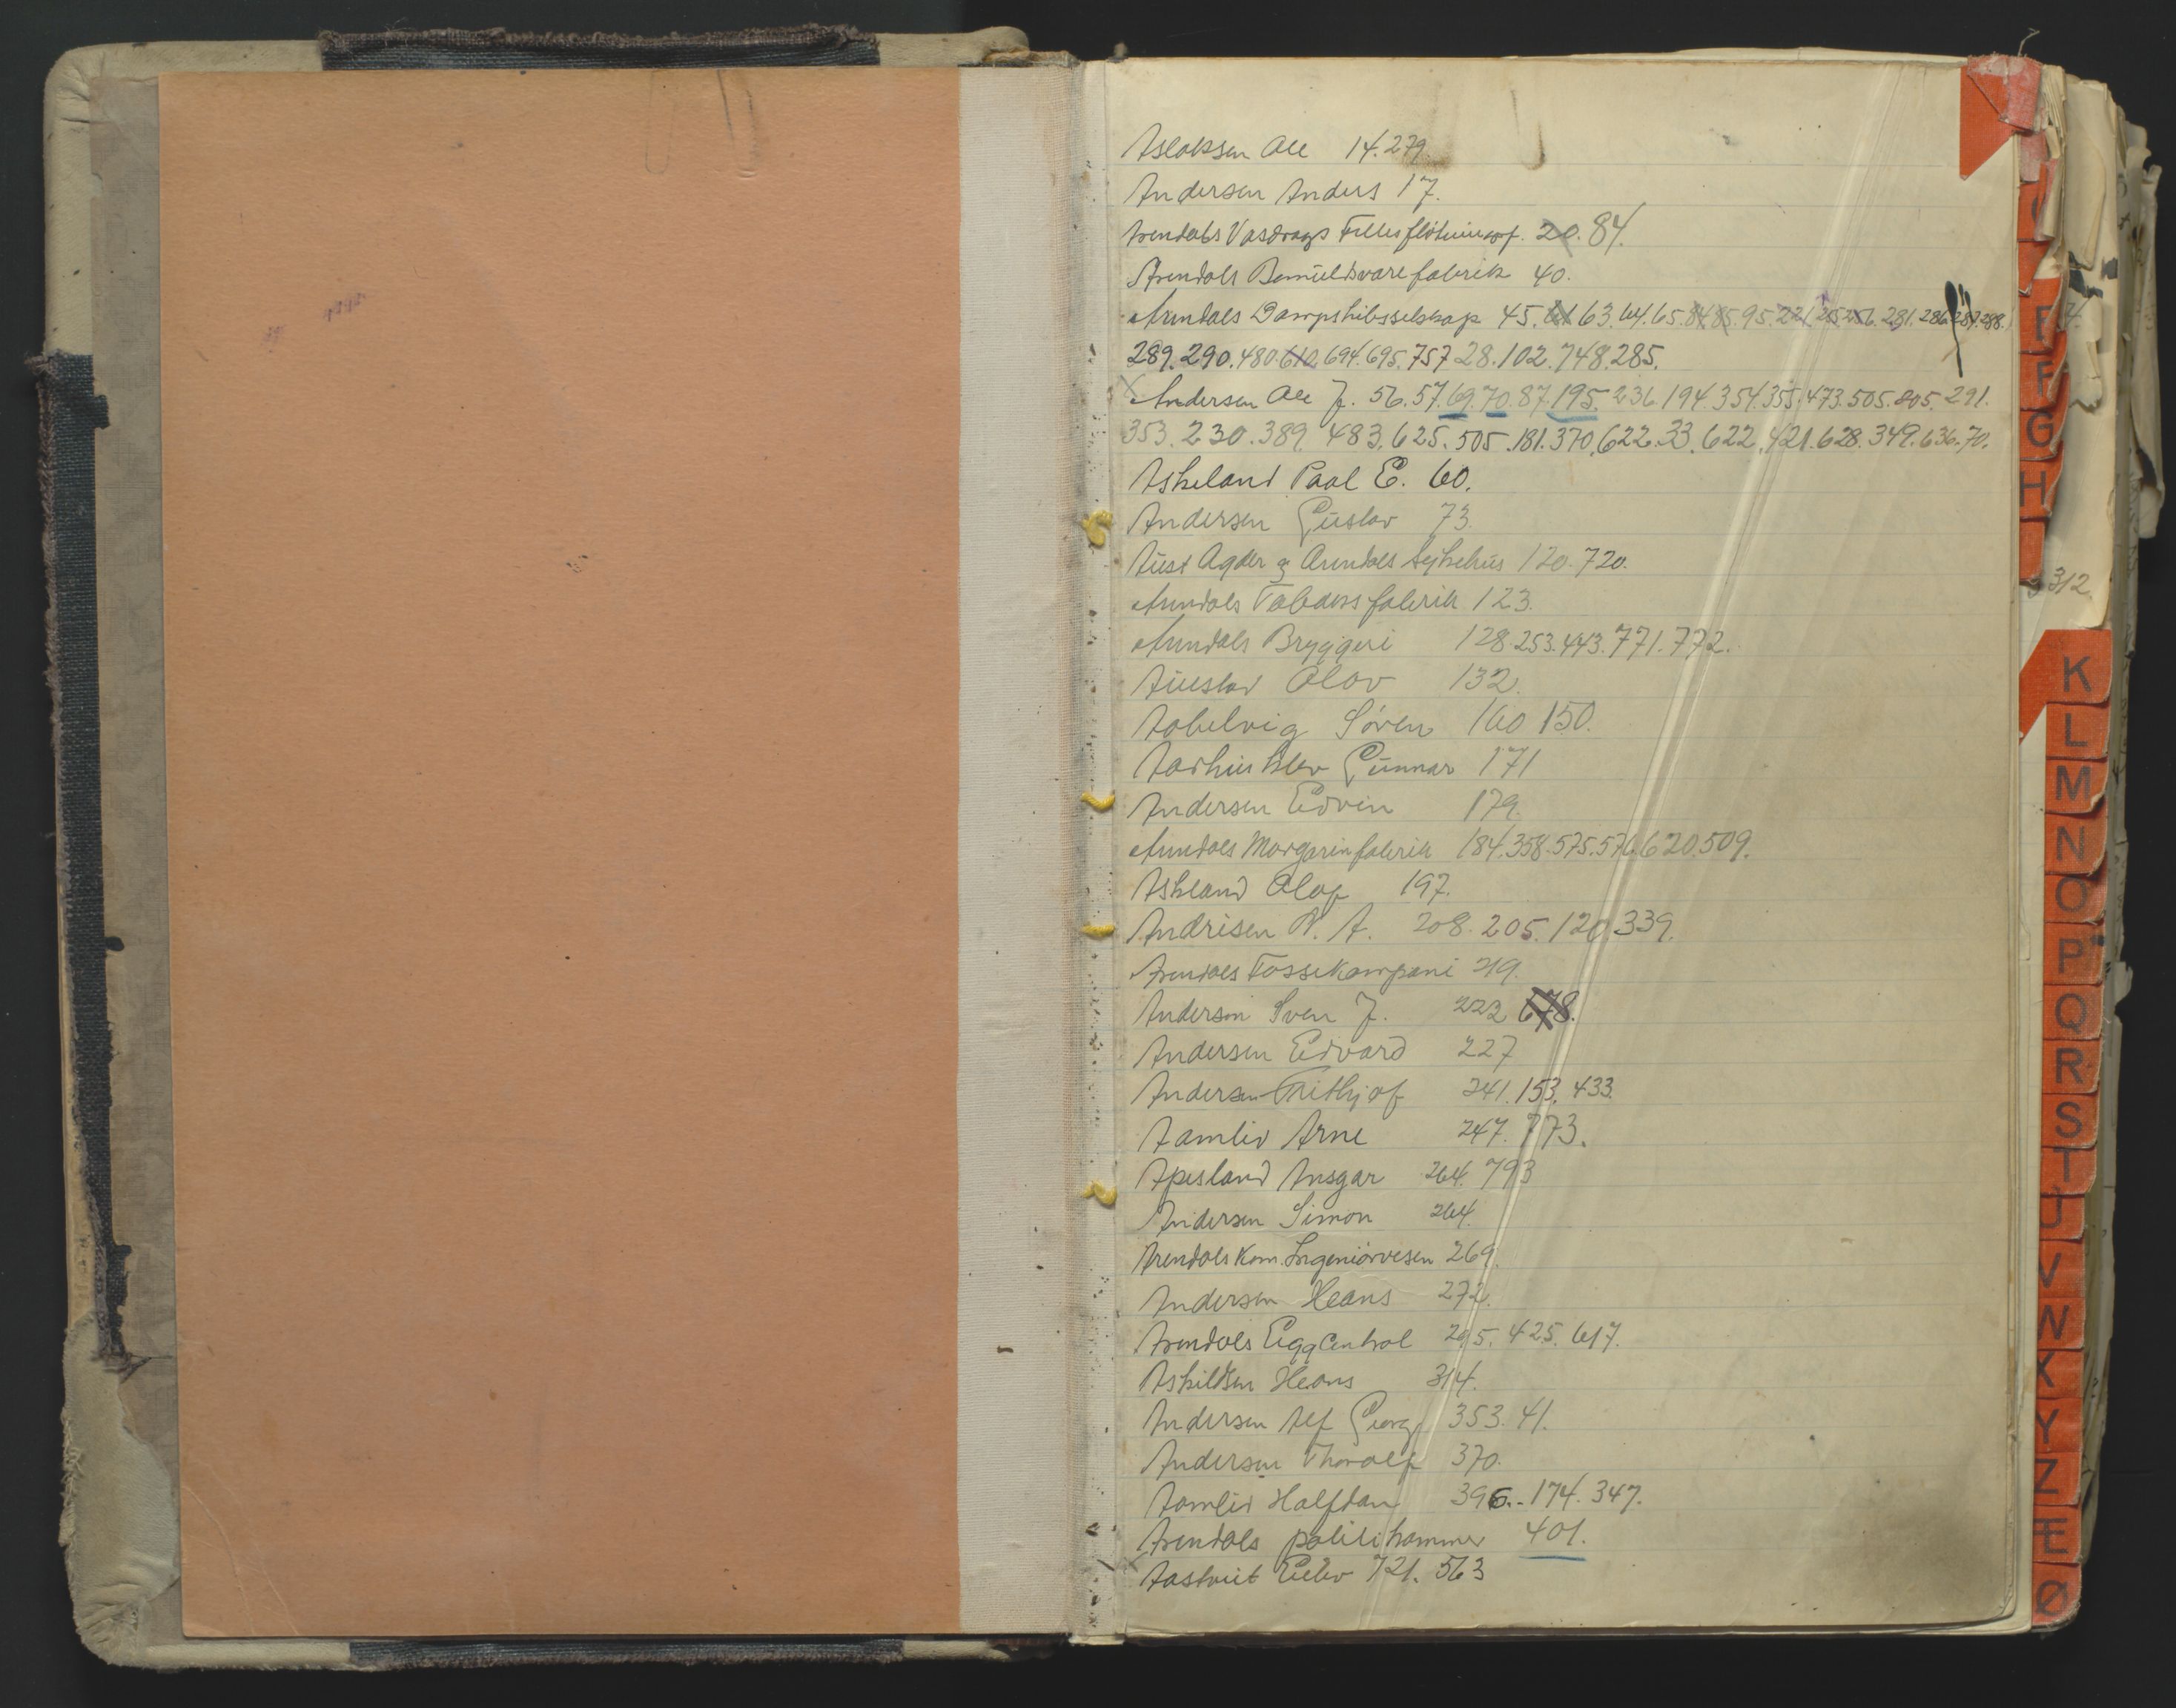 Aslaksen Ole 14.279.
Andersen Anders 17.
Arendals Vasdrags Fellesfløtning 20. 84.
Arendals Bomuldsvarefabrik 40.
Arendals Dampskibsselskap 45. 61 63. 64. 65. 84. 85. 95. 281. 286. 287. 288.
289. 290. 480. 610. 694. 695. 757 28. 102. 748. 285.
X Andersen Ole J. 56. 57. 69. 70. 87. 195. 236. 194. 354. 355. 473. 505. 805. 291.
353. 230. 389. 483. 625. 505. 181. 370. 622. 33. 622. 421. 628. 349. 636. 70.
Askeland Paal E. 60.
Andersen Gustav 73.
Aust Agder og Arendals Sykehus 120. 720.
Arendals Tobaksfabrik 123.
Arendals Bryggeri 128. 253. 443. 771. 772.
Olav 132.
Søren 160 150.
Gunnar 171
Andersen Edvin 179.
Arendals Margarinfabrik 184. 358. 575. 576. 620. 509.
Askland Olaf 197.
Andrisen N. A. 208. 205. 120. 339.
Arendals Fossekompani 219.
Anderson Sven J. 223. 678.
Andersen Edvard 227
Andersen Frithjof 241. 153. 433.
Aamlid Arne 247. 773.
Apesland Ansgar 264. 793
Andersen Simon 264.
Arendals Kom. Ingeniørvesen 269.
Andersen Hans 272.
Arendals Eggcentral 295. 425. 617.
Askildsen Hans 314.
Andersen Alf Georg 353. 41.
Andersen Thoralf 370.
Aamlid Halfdan 396. 174. 347.
Arendals politikammer 401.
X Aastveit Eilev 721. 563
312
E
F
G
H
I
K
L
M
N
O
P
Q
R
S
T
U
V
W
X
Y
Z
Æ
Ø